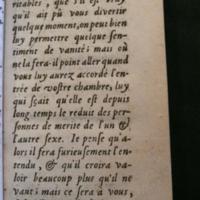 ritables, que s'il est vray
qu'il ait pû vous divertir
quelque moment, on peut bien
luy permettre quelque sen-
timent de vanité: mais où
ne la fera-il point aller quand
vous luy aurez accordé l'en-
trée de vostre chambre, luy
qui sçait qu'elle est depuis
long temps le reduit des per-
sonnes de merite de l'un &
l'autre sexe. Ie pense qu'a-
lors il sera furieusement l'en-
tendu, & qu'il croira va-
loir beaucoup plus qu'il ne
vaut; mais ce sera à vous,